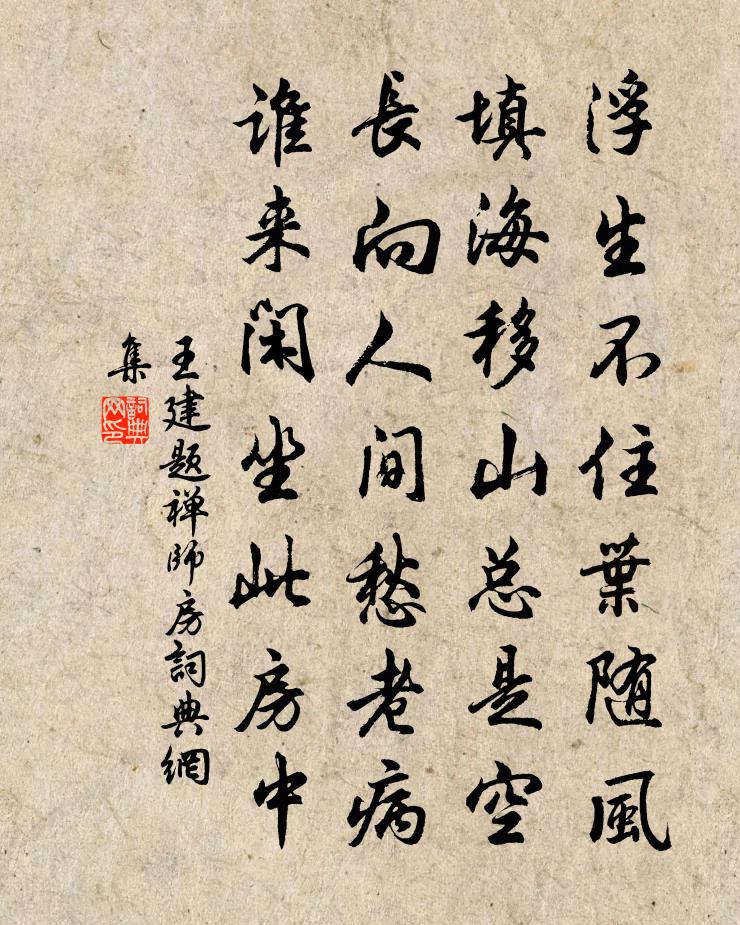 浮生不住葉随風
填海移山总是空
長向人间愁老病
谁来闲坐此房中
王建题禅师房詞典網
集
詞典
网印